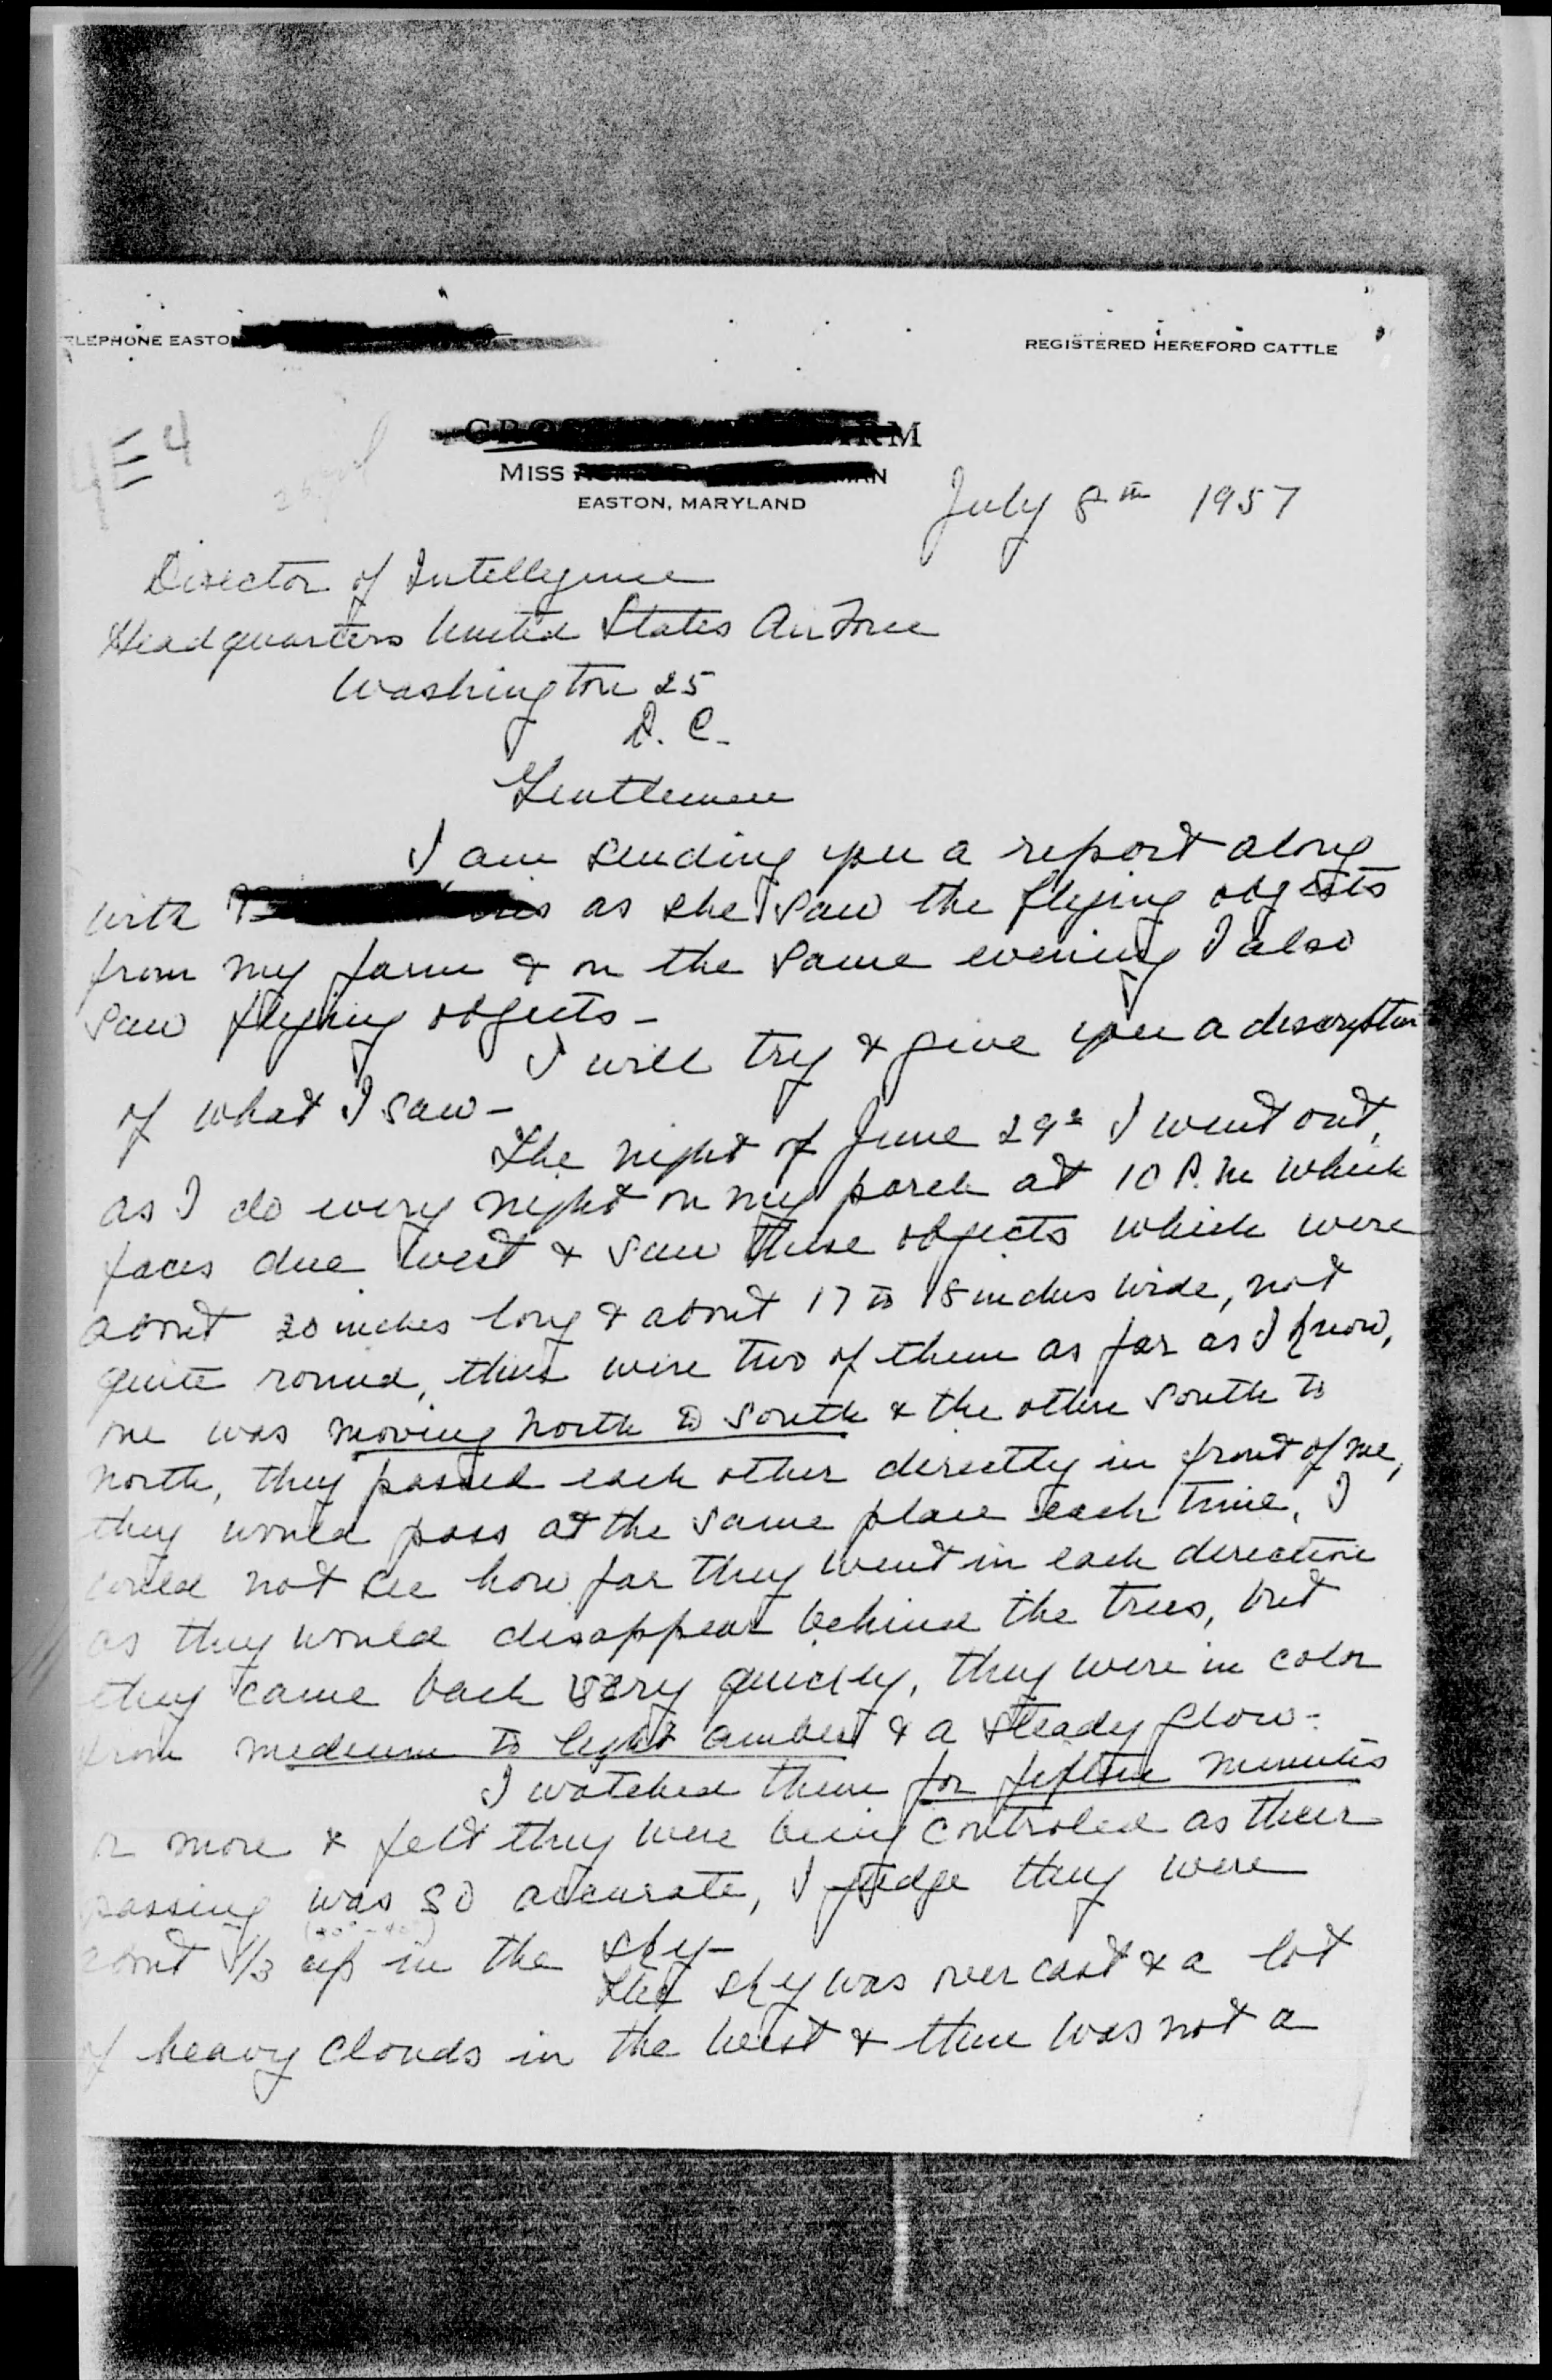 TELEPHONE EASTON
REGISTERED HEREFORD CATTLE
4E4
MISS
EASTON, MARYLAND
July 8th 1957
Director of Intellegence
Headquarters United States Air Force
Washington 25
D. C.
Gentlemen
I am sending you a report along
with as she saw the flying objects
from my farm & on the same evening I also
saw flying objects -
I will try & give you a description
of what I saw -
The night of June 29 I went out,
as I do every night on my porch at 10 P.M which
faces due west & saw these objects which were
about 20 inches long & about 17 to 18 inches wide, not
quite round, there were two of them as far as I know,
one was moving north to south & the other south to
north, they passed each other directly in front of me,
they would pass at the same place each time, I
could not see how far they went in each direction
as they would disappear behind the trees, but
they came back very quickly, they were in color
from medium to light amber & a steady glow -
I watched them for fifteen minutes
or more & felt they were being controled as their
passing was so accurate, I judge they were
about 1/3 up in the sky -
The sky was over cast & a lot
of heavy clouds in the west & there was not a